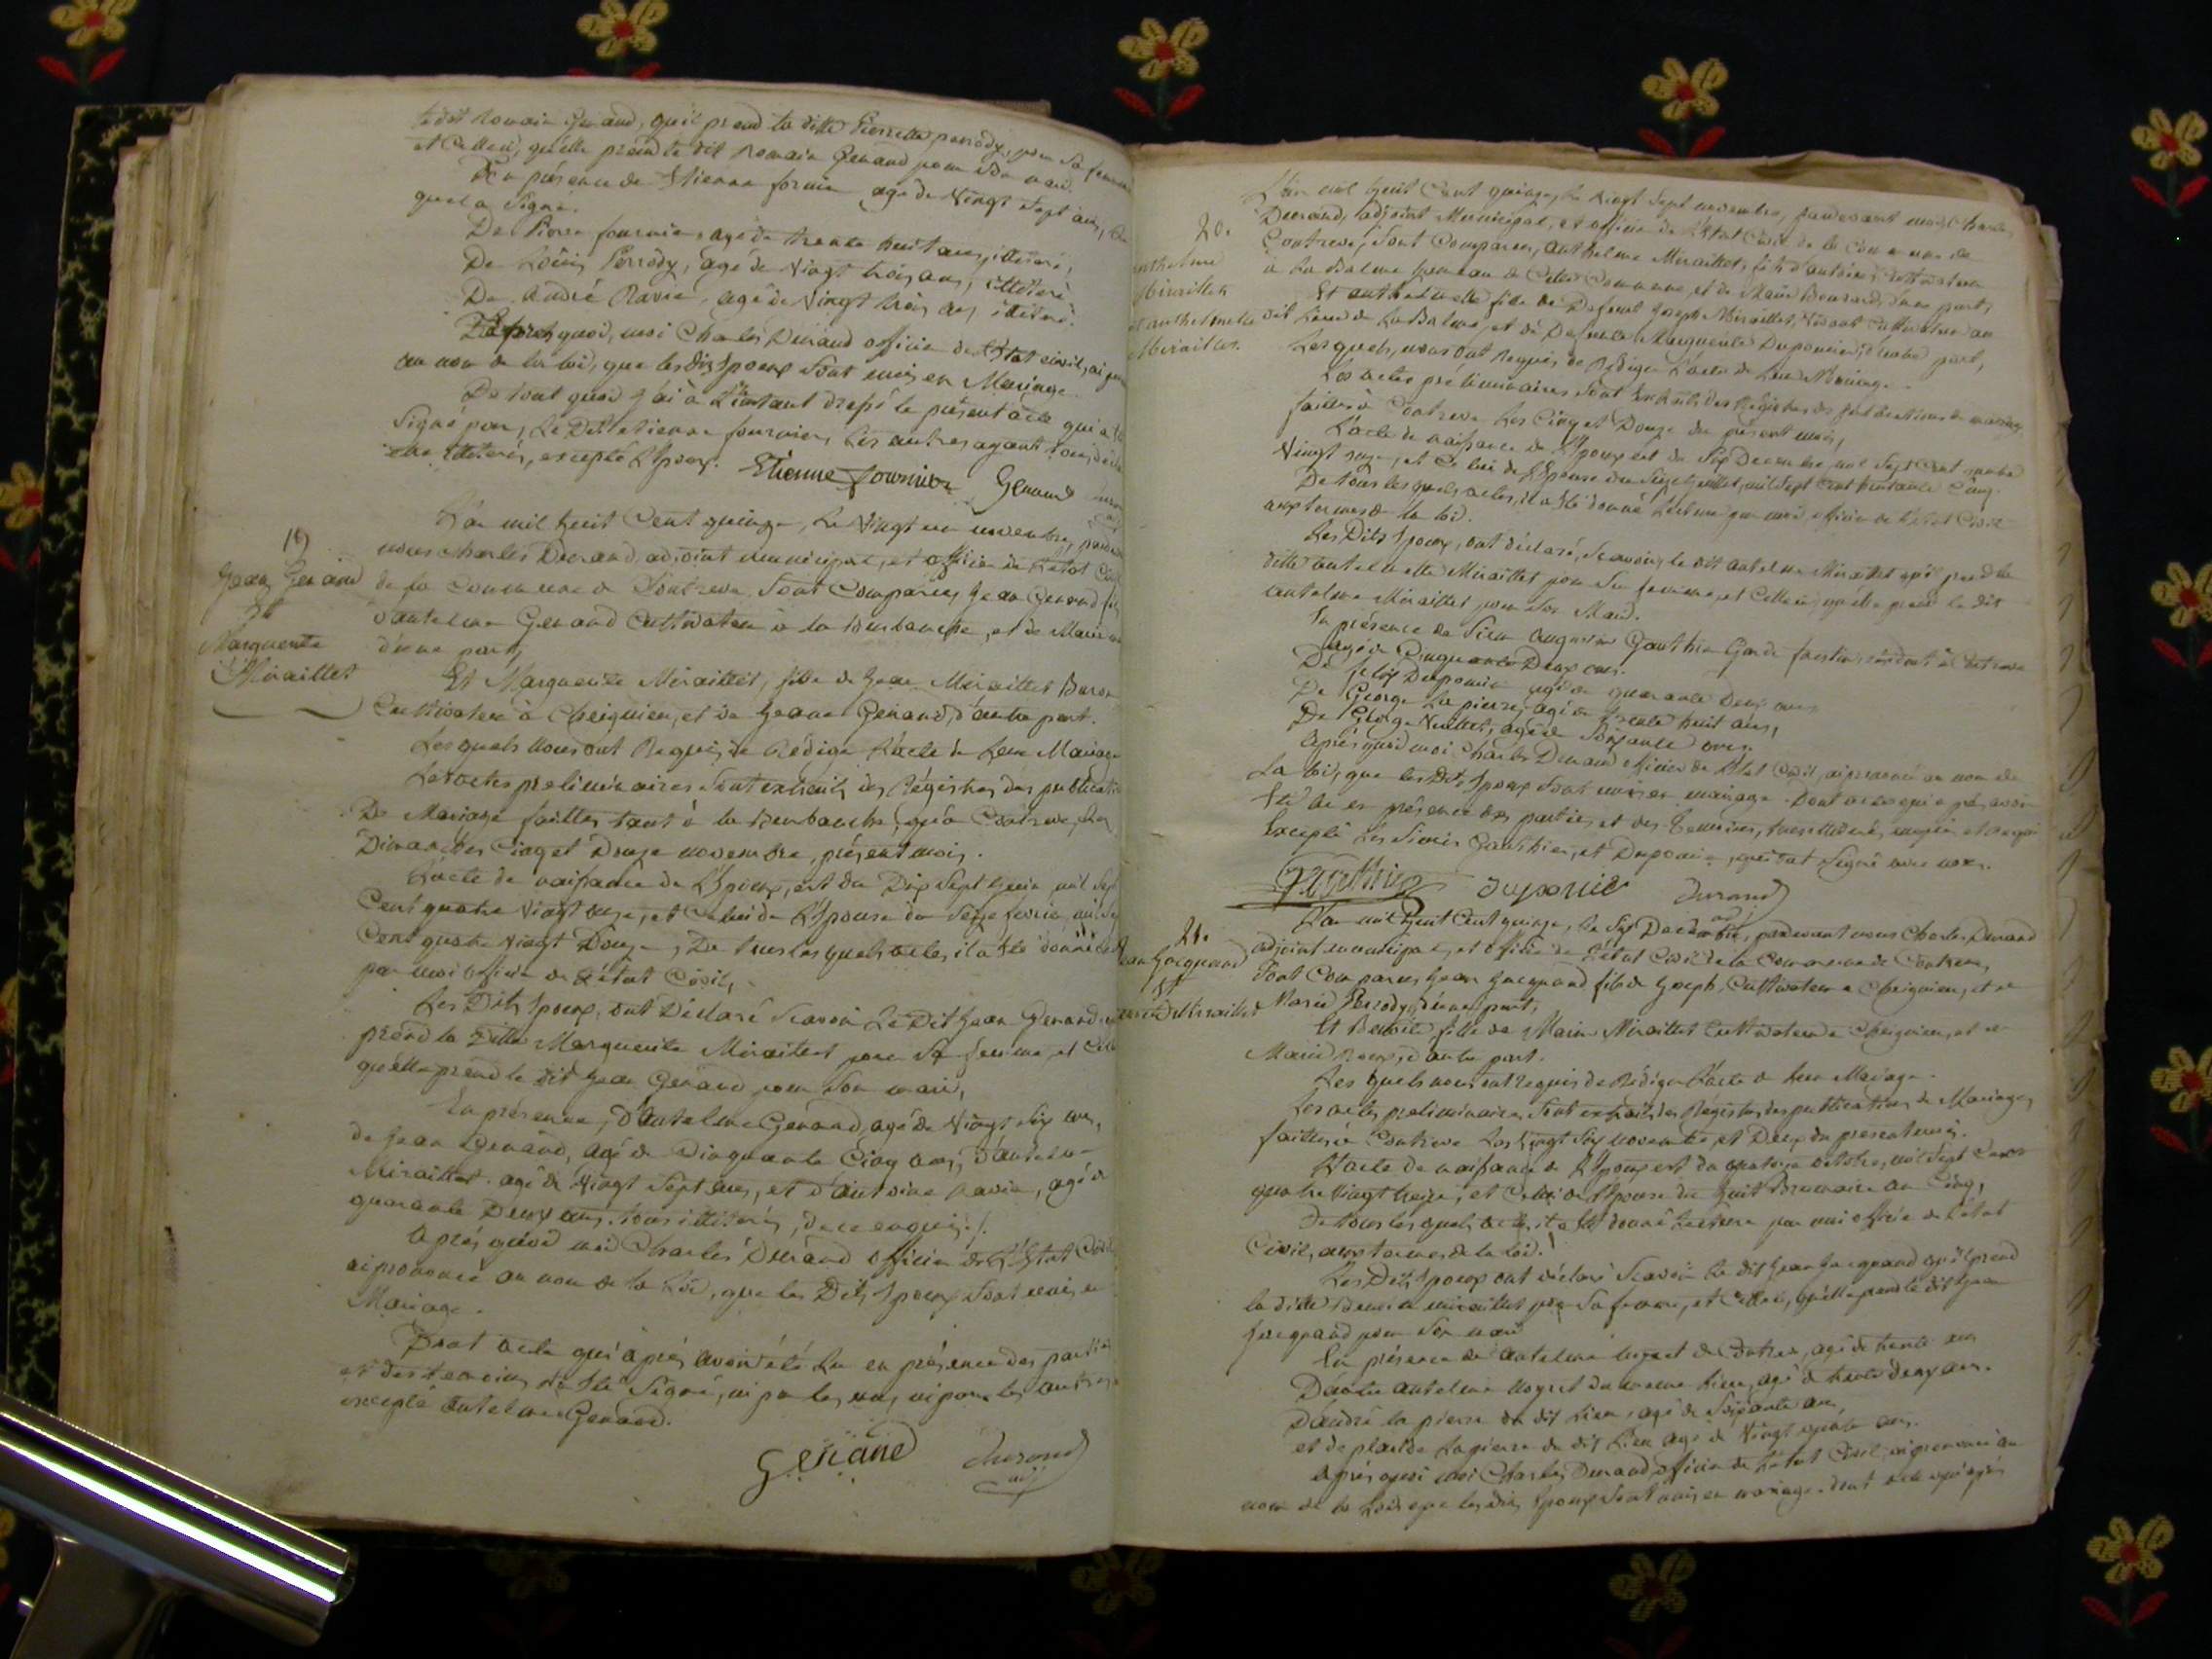 le dit Romain Genand, qu'il prend la ditte Pierrette perrody, pour sa femme
et Celleci, qu'elle prend le dit Romain Genand pour son mari
En présence de Etienne fournier agé de Vingt Sept ans,
quel a Signé.
De Pierre fournier, agé de trente huit ans, illiteré,
De Louis Perrody, agé de Vingt trois ans, illiteré
De André Ravie, agé de Vingt trois ans illiteré.
Après quoi, moi Charles Durand officier de L'Etat civil, ai
au nom de la loi, que les dits Epoux Sont unis en Mariage.
De tout quoi j'ai à L'instant dressé le présent acte qui a
Signé par, Le Dit etienne fournier, Les autres ayant tous
être illiterés, excepté L'Epoux. Etienne fournier Genand
19
Jean Genand
et
Marguerite
Miraillet
L'an mil huit Cent quinze, Le Vingt un novembre,
nous charles Durand, adjoint municipal, et officier de L'etat
de la Commune de Contrevoz Sont Comparus Jean Genand
d'antelme Genand Cultivateur à la burbanche, et de Marie
d'une part,
Et Marguerite Miraillet, fille de Jean Miraillet
Cultivateur à Cheignieu, et de Jeanne Genand, d'autre part.
Lesquels nous ont Requis de Rediger L'acte de Leur Mariage
Les actes preliminaires Sont extraits des Régistres des publications
De Mariage faittes tant à la burbanche, qu'à Contrevoz, Les
Dimanches Cinq et Douze novembre, présent mois.
L'acte de naissance de L'Epoux, est du Dix Sept mil Sept
Cent quatre Vingt onze, et Celui de L'Epouse du Seize fevrier, mil
Cent quatre Vingt Douze, De tous les quels actes il a été donné
par moi officier de L'état Civil,
Les Dits Epoux, ont Déclaré Scavoir Le Dit Jean Genand
prend la Ditte Marguerite Miraillet pour Sa femme, et
qu'elle prend le dit Jean Genand pour Son mari,
En présence, D'Antelme Genand, agé de Vingt Six ans,
de Jean Genand, agé de Cinquante Cinq ans, d'antelme
Miraillet agé de Vingt Sept ans, et d'antoine Ravier, agé de
quarante Deux ans, tous illiterés,
après quoi moi Charles Durand officier de L'Etat Civil
ai prononcé au nom de la Loi, que les Dits Epoux Sont unis en
Mariage.
Dont acte qui après avoir été Lu en présence des parties
et des temoins été Signé, ni par les uns, ni par les autres
excepté antelme Genand.
Genand Durand
adj
20.
anthelme
Miraillet
et anthelmette
Miraillet
L'an mil huit Cent quinze, Le Vingt Sept novembre, pardevant nous Charles
Durand, adjoint Municipal, et officier de L'Etat Civil de la Commune de
Contrevoz, Sont Comparus, anthelme Miraillet, fils d'antoine, Cultivateur
à La Balme hameau de Cette Commune, et de Marie d'une part,
Et anthelmette fille de Defunt Joseph Miraillet, Vivant Cultivateur au
dit Lieu de La Balme, et de Defunte Marguerite Duponier, d'autre part,
Lesquels, nous ont Requis de Rédiger L'acte de Leur Mariage.
Les actes préliminaires Sont Extraits des Régistres de publications de mariage,
faittes à Contrevoz Les Cinq et Douze du présent mois,
L'acte de naissance de L'Epoux est du Six Decembre mil Sept Cent quatre
Vingt onze, et Celui de L'Epouse du Seize juillet, mil Sept Cent
De tous lesquels actes, il a été donné Lecture par moi officier de L'Etat Civil
aux termes de la loi.
Les Dits Epoux, ont déclaré, Scavoir, le dit antelme Miraillet qu'il prend la
ditte antelmette Miraillet pour Sa femme, et Celle ci, qu'elle prend le dit
antelme Miraillet pour Son Mari.
En présence de Sieur Gauthier Garde forestier, résidant à Contrevoz
agé de Cinquante Deux ans.
De felix Duponier agé de quarante Deux ans
De George La pierre, agé de trente huit ans,
De George agé de Soixante ans.
Après quoi moi Charles Durand officier de L'Etat Civil, ai prononcé au nom de
La Loi, que les Dits Epoux Sont unis en mariage. Dont acte qui après avoir
été lu en présence des parties, et des Temoins,
Excepté Les Sieurs Gauthier, et Duponier, qui ont Signé avec nous.
Gauthier duponier Durand
adj
21.
Jean Jacquand
et
Miraillet
L'an mil huit Cent quinze, Le Six Decembre, pardevant nous Charles Durand
adjoint municipal, et officier de L'état Civil de la Commune de Contrevoz,
Sont Comparus Jean Jacquand fils de Joseph, Cultivateur à Cheignieu, et de
Marie Perrody, d'une part,
Et Benoite fille de Marin Miraillet Cultivateur à Cheignieu, et de
Marie Roux, d'autre part.
Les quels nous ont Requis de Rédiger L'acte de Leur Mariage.
Les actes preliminaires Sont extraits des Régistres des publications de Mariage,
faittes à Contrevoz Les Vingt Six novembre, et Deux du present mois.
L'acte de naissance de L'Epoux est du quatorze octobre, mil Sept Cent
quatre Vingt treize, et Celui de L'Epouse du huit Brumaire an Cinq,
De tous les quels actes, il a été donné Lecture par moi officier de L'état
Civil, aux termes de la loi.
Les Dits Epoux ont déclaré Scavoir Le dit Jean Jacquand qu'il prend
la ditte Benoite miraillet pour Sa femme, et Celle ci, qu'elle prend le dit Jean
Jacquand pour Son mari
En présence de antelme de Contrevoz, agé de trente ans
D'autre antelme du meme Lieu, agé de trente deux ans.
D'andré la pierre du dit Lieu, agé de Soixante ans,
et de placide Lapierre du dit Lieu agé de Vingt quatre ans.
après quoi moi Charles Durand officier de L'état Civil, ai prononcé au
nom de la Loi que les dits Epoux Sont unis en mariage. dont acte qui après